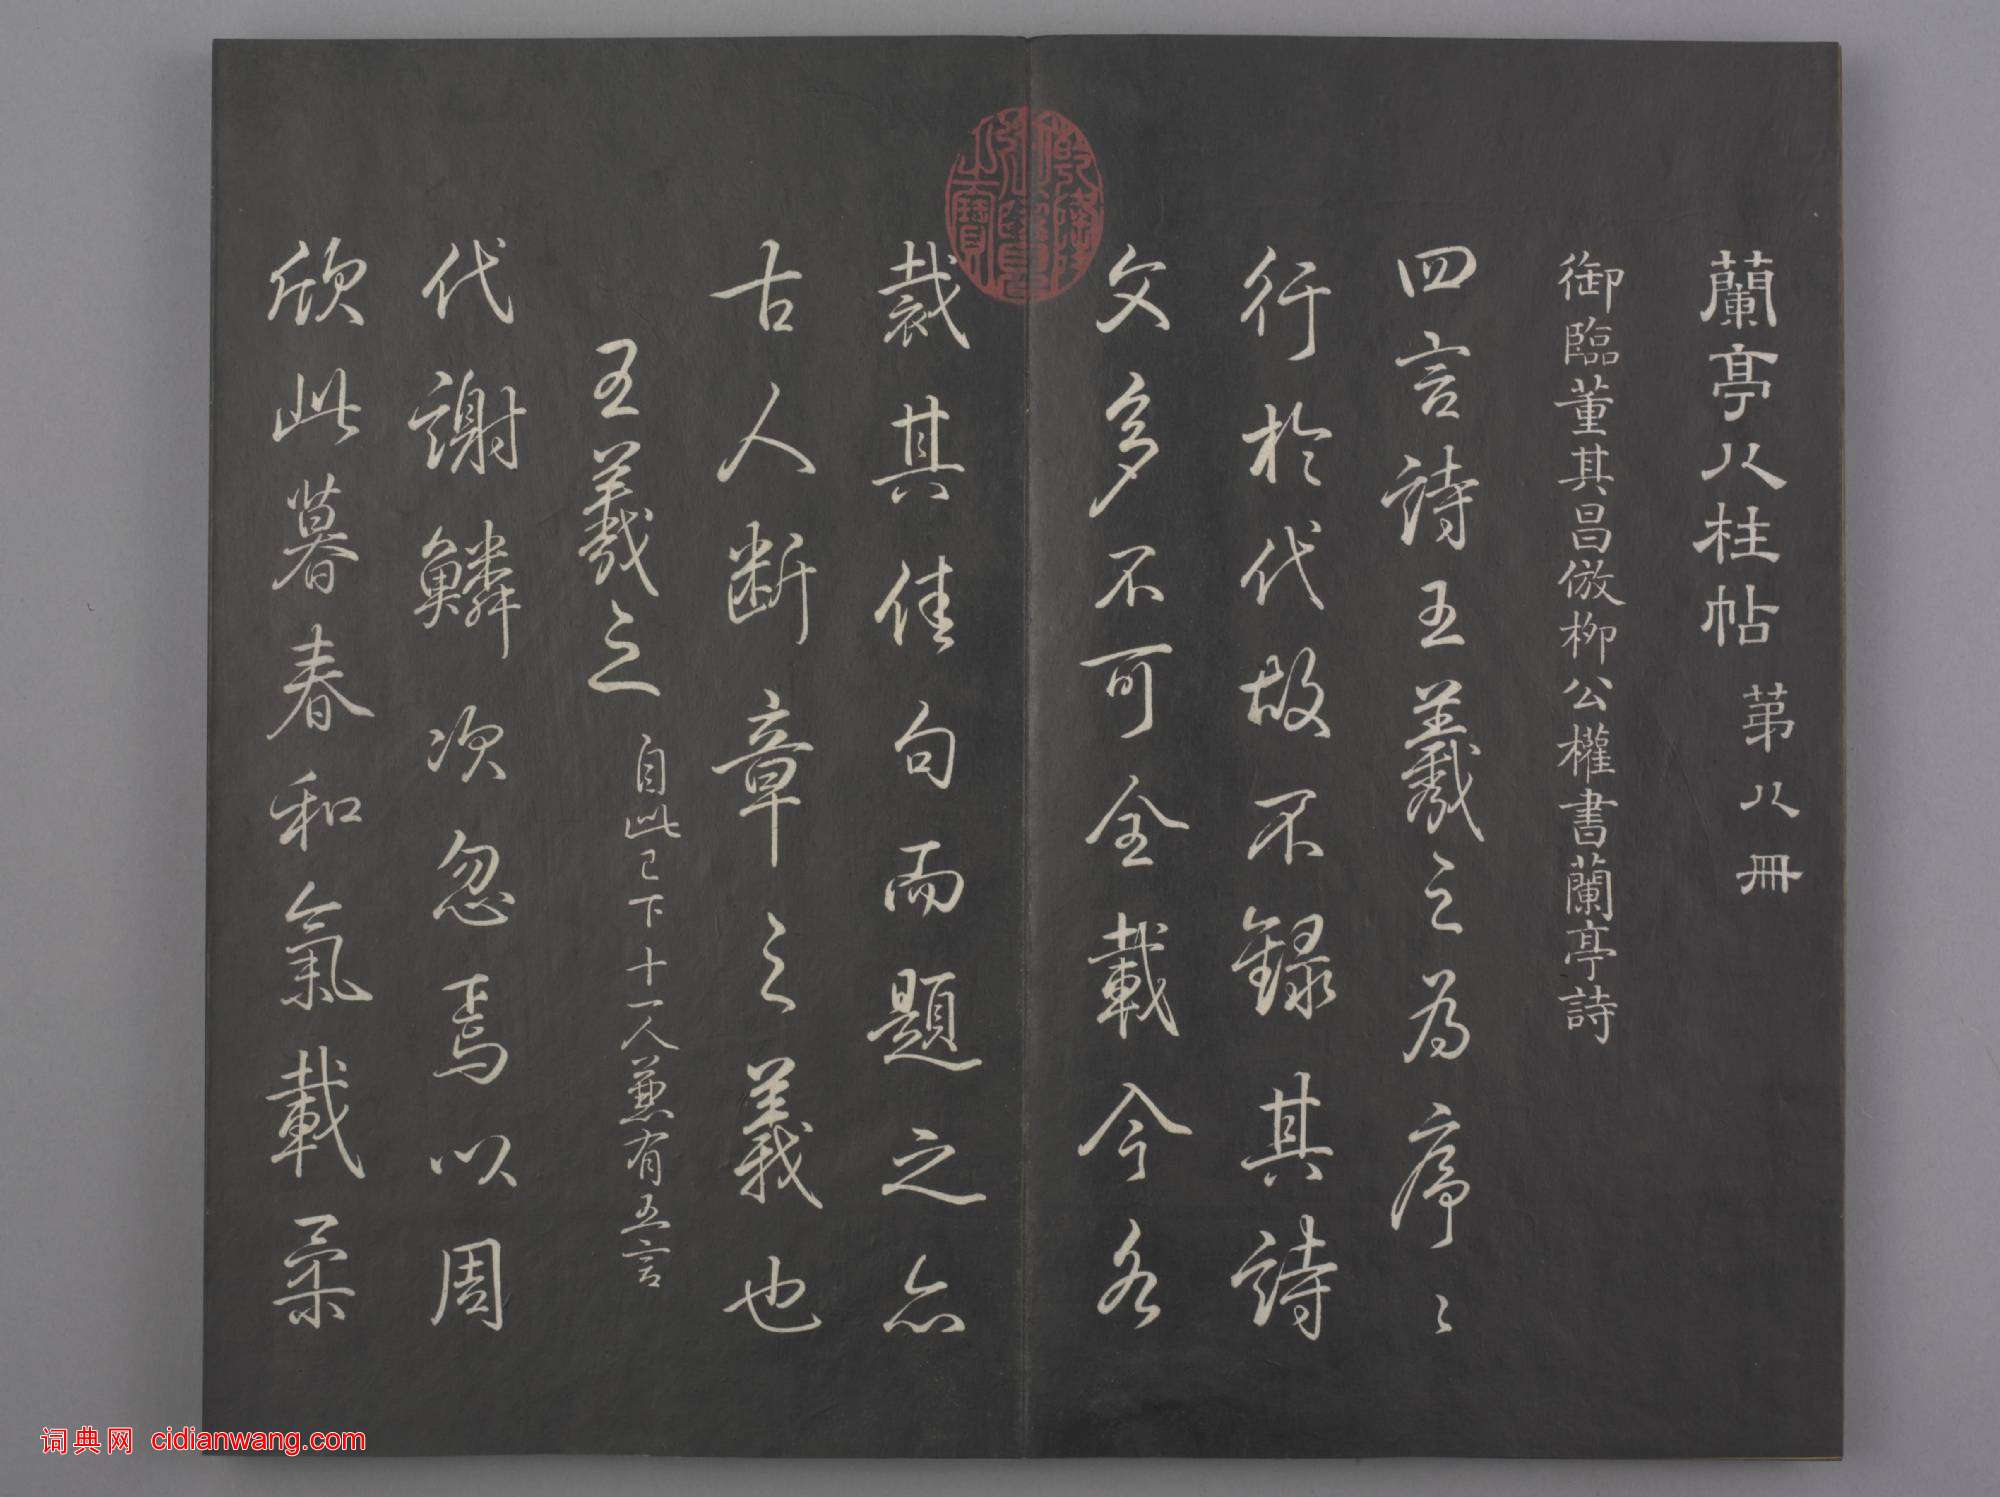 蘭亭八柱帖 第八冊
御臨董其昌倣柳公權書蘭亭詩
四言詩王羲之為序〻
行於代故不録其詩
文多不可全載今各
裁其佳句而題之亦
古人断章之義也
王羲之 自此已下十一人兼有五言
代謝鱗次忽焉以周
欣此暮春和氣載柔
乾隆御覽之寶
词典网 cidianwang.com